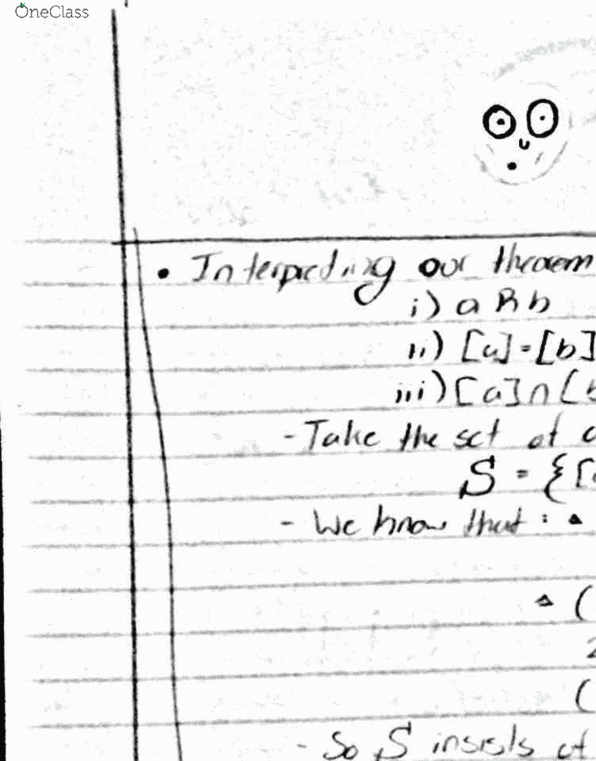 OneClass
• Interpreting our theorem
i) a R b
ii) [a]=[b]
iii) [a]∩[b
- Take the set of a
S = {[a
- We know that : ▵
▵ (
2
(
- So S insists of